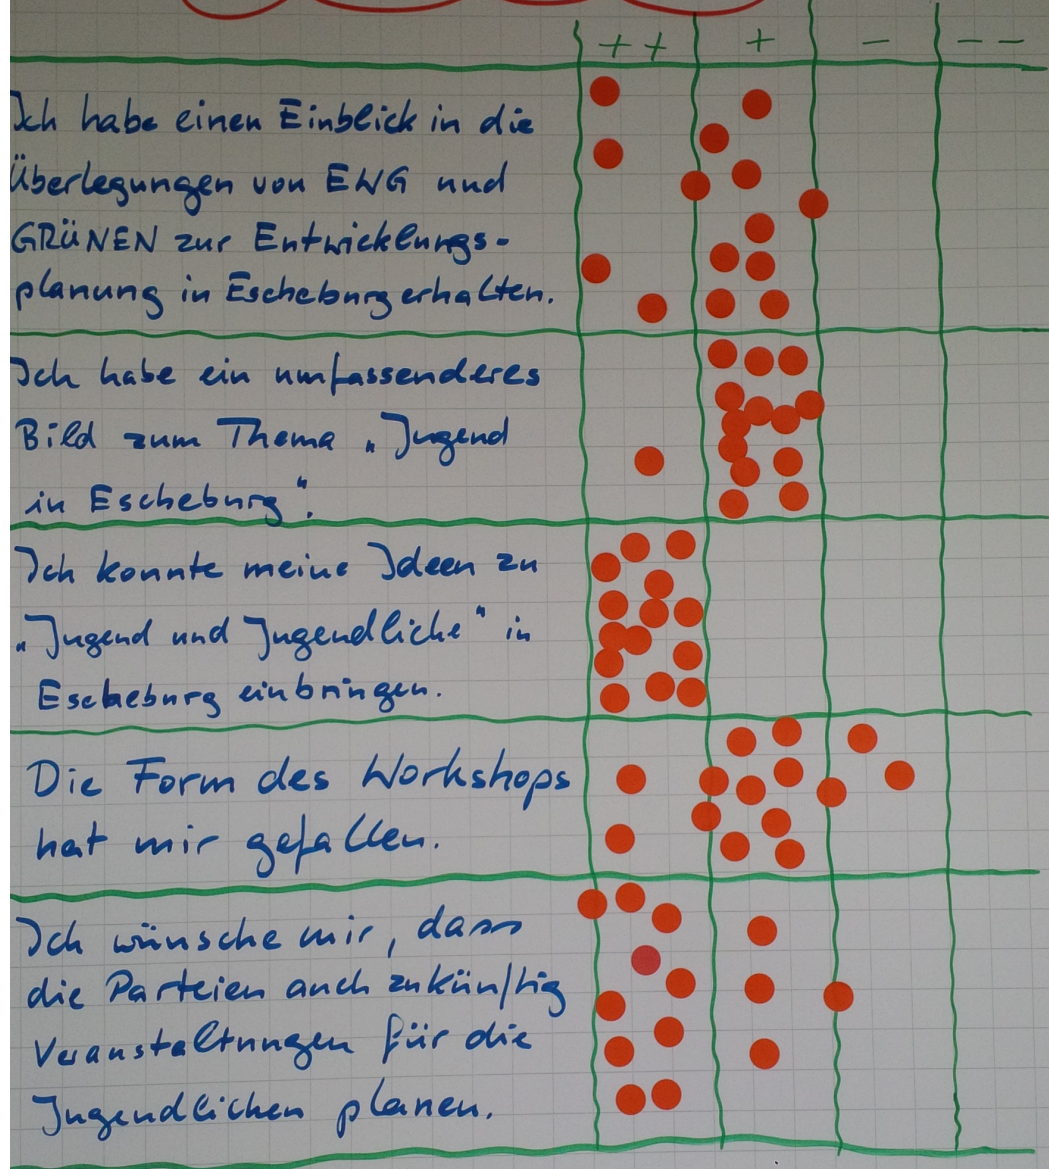 ++ + - --
Ich habe einen Einblick in die
Überlegungen von EWG und
GRÜNEN zur Entwicklungs-
planung in Escheburg erhalten.
Ich habe ein umfassenderes
Bild zum Thema „Jugend
in Escheburg".
Ich konnte meine Ideen zu
„Jugend und Jugendliche" in
Escheburg einbringen.
Die Form des Workshops
hat mir gefallen.
Ich wünsche mir, dass
die Parteien auch zukünftig
Veranstaltungen für die
Jugendlichen planen.